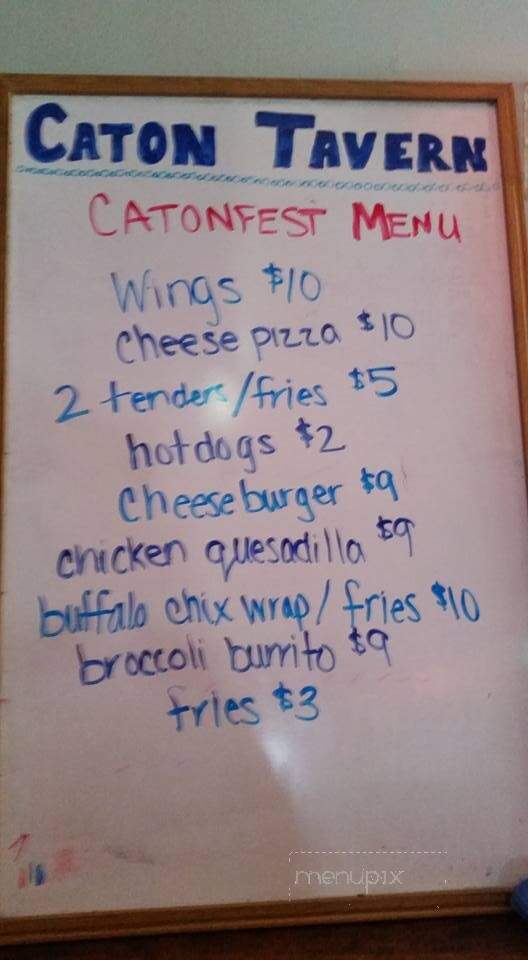 CATON TAVERN
CATONFEST MENU
Wings $10
Cheese pizza $10
2 tenders/fries $5
hotdogs $2
Cheeseburger $9
chicken quesadilla $9
buffalo chix wrap/fries $10
broccoli burrito $9
fries $3
menupix